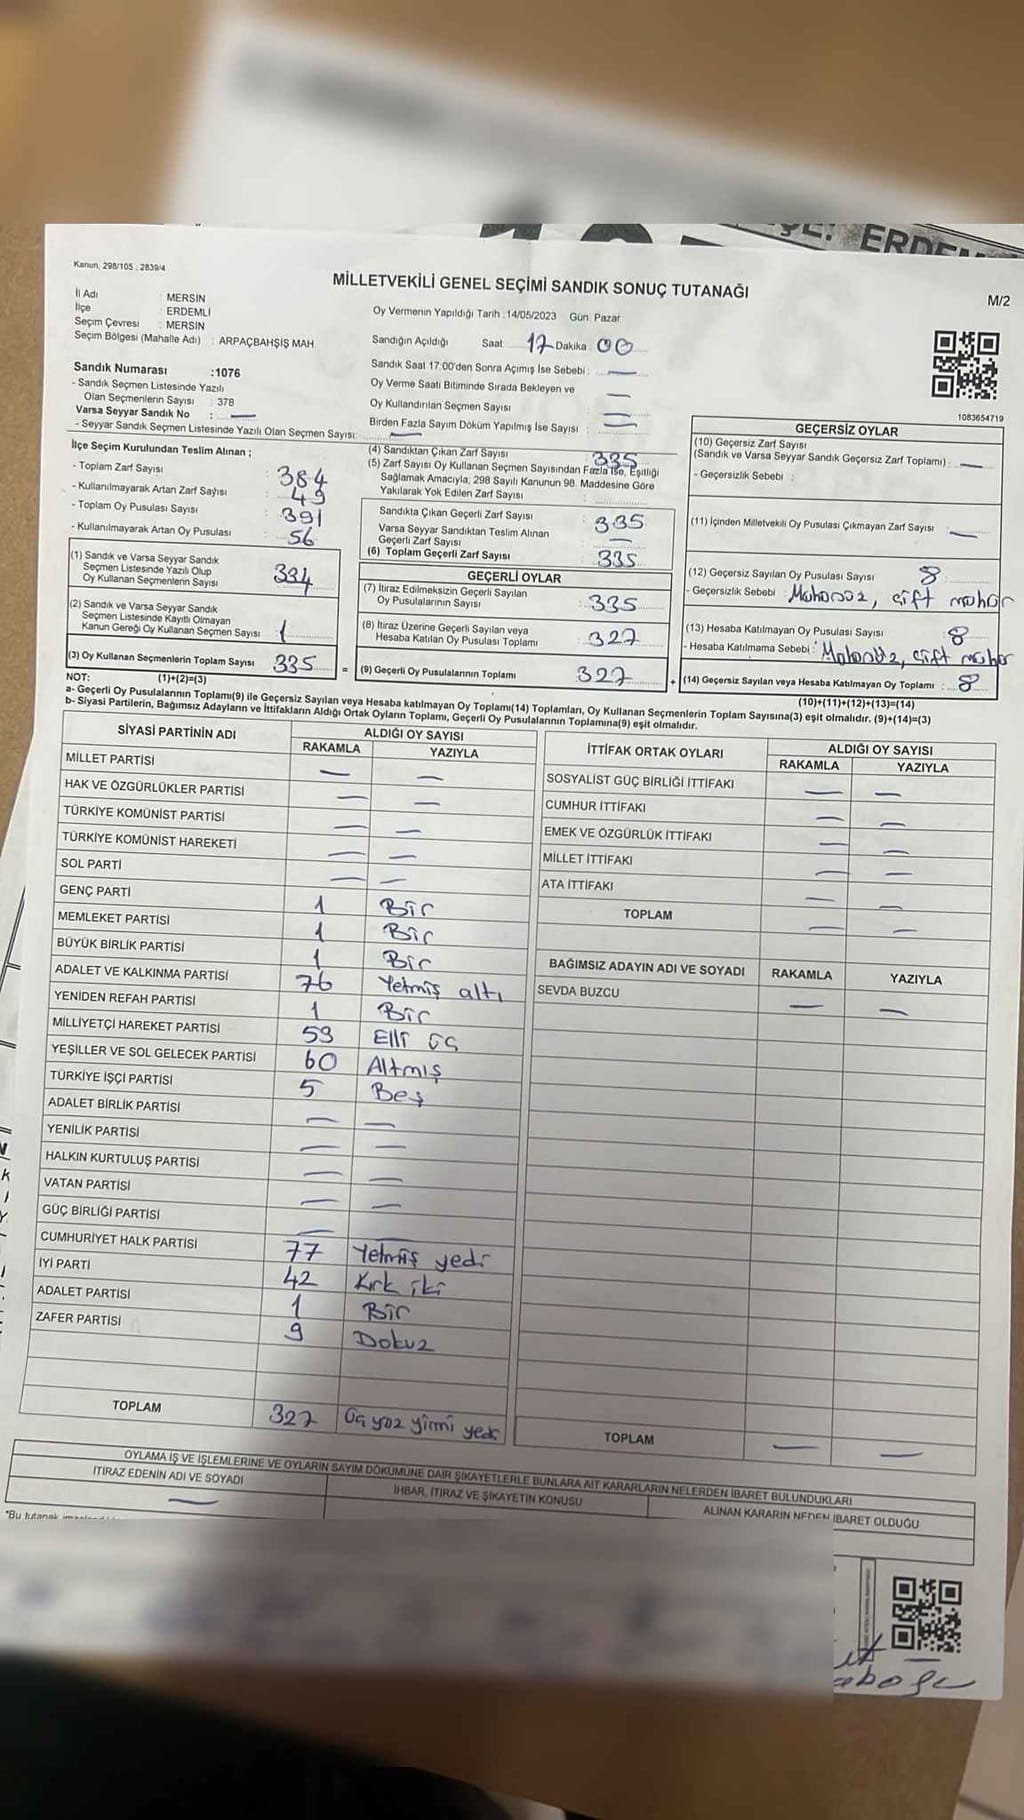 ERDEM
Kanun, 298/105 , 2839/4
MİLLETVEKİLİ GENEL SEÇİMİ SANDIK SONUÇ TUTANAĞI
M/2
İl Adı : MERSİN
İlçe : ERDEMLİ
Seçim Çevresi : MERSİN
Seçim Bölgesi (Mahalle Adı) : ARPAÇBAHŞİŞ MAH
Oy Vermenin Yapıldığı Tarih :14/05/2023 Gün: Pazar
Sandığın Açıldığı Saat: 17 Dakika: 00
Sandık Saat 17.00'den Sonra Açımış İse Sebebi : —
Oy Verme Saati Bitiminde Sırada Bekleyen ve
Oy Kullandırılan Seçmen Sayısı —
Birden Fazla Sayım Döküm Yapılmış İse Sayısı : —
1083654719
Sandık Numarası :1076
- Sandık Seçmen Listesinde Yazılı
Olan Seçmenlerin Sayısı : 378
Varsa Seyyar Sandık No : —
- Seyyar Sandık Seçmen Listesinde Yazılı Olan Seçmen Sayısı: —
İlçe Seçim Kurulundan Teslim Alınan ;
- Toplam Zarf Sayısı : 384
- Kullanılmayarak Artan Zarf Sayısı : 49
- Toplam Oy Pusulası Sayısı : 391
- Kullanılmayarak Artan Oy Pusulası : 56
(1) Sandık ve Varsa Seyyar Sandık
Seçmen Listesinde Yazılı Olup
Oy Kullanan Seçmenlerin Sayısı : 334
(2) Sandık ve Varsa Seyyar Sandık
Seçmen Listesinde Kayıtlı Olmayan
Kanun Gereği Oy Kullanan Seçmen Sayısı : 1
(3) Oy Kullanan Seçmenlerin Toplam Sayısı : 335
(4) Sandıktan Çıkan Zarf Sayısı : 335
(5) Zarf Sayısı Oy Kullanan Seçmen Sayısından Fazla İse, Eşitliği
Sağlamak Amacıyla, 298 Sayılı Kanunun 98. Maddesine Göre
Yakılarak Yok Edilen Zarf Sayısı :
Sandıkta Çıkan Geçerli Zarf Sayısı : 335
Varsa Seyyar Sandıktan Teslim Alınan
Geçerli Zarf Sayısı : —
(6) Toplam Geçerli Zarf Sayısı : 335
GEÇERLİ OYLAR
(7) İtiraz Edilmeksizin Geçerli Sayılan
Oy Pusulalarının Sayısı : 335
(8) İtiraz Üzerine Geçerli Sayılan veya
Hesaba Katılan Oy Pusulası Toplamı : 327
= (9) Geçerli Oy Pusulalarının Toplamı : 327 +
GEÇERSİZ OYLAR
(10) Geçersiz Zarf Sayısı
(Sandık ve Varsa Seyyar Sandık Geçersiz Zarf Toplamı) : —
- Geçersizlik Sebebi :
(11) İçinden Milletvekili Oy Pusulası Çıkmayan Zarf Sayısı : —
(12) Geçersiz Sayılan Oy Pusulası Sayısı : 8
- Geçersizlik Sebebi : Mühürsüz, çift mühür
(13) Hesaba Katılmayan Oy Pusulası Sayısı : 8
- Hesaba Katılmama Sebebi : Mühürsüz, çift mühür
(14) Geçersiz Sayılan veya Hesaba Katılmayan Oy Toplamı : 8
NOT: (1)+(2)=(3)
(10)+(11)+(12)+(13)=(14)
a- Geçerli Oy Pusulalarının Toplamı(9) ile Geçersiz Sayılan veya Hesaba katılmayan Oy Toplamı(14) Toplamları, Oy Kullanan Seçmenlerin Toplam Sayısına(3) eşit olmalıdır. (9)+(14)=(3)
b- Siyasi Partilerin, Bağımsız Adayların ve İttifakların Aldığı Ortak Oyların Toplamı, Geçerli Oy Pusulalarının Toplamına(9) eşit olmalıdır.
SİYASİ PARTİNİN ADI ALDIĞI OY SAYISI
RAKAMLA YAZIYLA
MİLLET PARTİSİ — —
HAK VE ÖZGÜRLÜKLER PARTİSİ — —
TÜRKİYE KOMÜNİST PARTİSİ — —
TÜRKİYE KOMÜNİST HAREKETİ — —
SOL PARTİ — —
GENÇ PARTİ 1 Bir
MEMLEKET PARTİSİ 1 Bir
BÜYÜK BİRLİK PARTİSİ 1 Bir
ADALET VE KALKINMA PARTİSİ 76 Yetmiş altı
YENİDEN REFAH PARTİSİ 1 Bir
MİLLİYETÇİ HAREKET PARTİSİ 53 Elli üç
YEŞİLLER VE SOL GELECEK PARTİSİ 60 Altmış
TÜRKİYE İŞÇİ PARTİSİ 5 Beş
ADALET BİRLİK PARTİSİ — —
YENİLİK PARTİSİ — —
HALKIN KURTULUŞ PARTİSİ — —
VATAN PARTİSİ — —
GÜÇ BİRLİĞİ PARTİSİ —
CUMHURİYET HALK PARTİSİ 77 Yetmiş yedi
İYİ PARTİ 42 Kırk iki
ADALET PARTİSİ 1 Bir
ZAFER PARTİSİ 9 Dokuz
TOPLAM 327 Üç yüz yirmi yedi
İTTİFAK ORTAK OYLARI ALDIĞI OY SAYISI
RAKAMLA YAZIYLA
SOSYALİST GÜÇ BİRLİĞİ İTTİFAKI — —
CUMHUR İTTİFAKI — —
EMEK VE ÖZGÜRLÜK İTTİFAKI — —
MİLLET İTTİFAKI — —
ATA İTTİFAKI — —
TOPLAM — —
BAĞIMSIZ ADAYIN ADI VE SOYADI RAKAMLA YAZIYLA
SEVDA BUZCU — —
TOPLAM — —
OYLAMA İŞ VE İŞLEMLERİNE VE OYLARIN SAYIM DÖKÜMÜNE DAİR ŞİKAYETLERLE BUNLARA AİT KARARLARIN NELERDEN İBARET BULUNDUKLARI
İTİRAZ EDENİN ADI VE SOYADI İHBAR, İTİRAZ VE ŞİKAYETİN KONUSU ALINAN KARARIN NEDEN İBARET OLDUĞU
—
*Bu tutanak